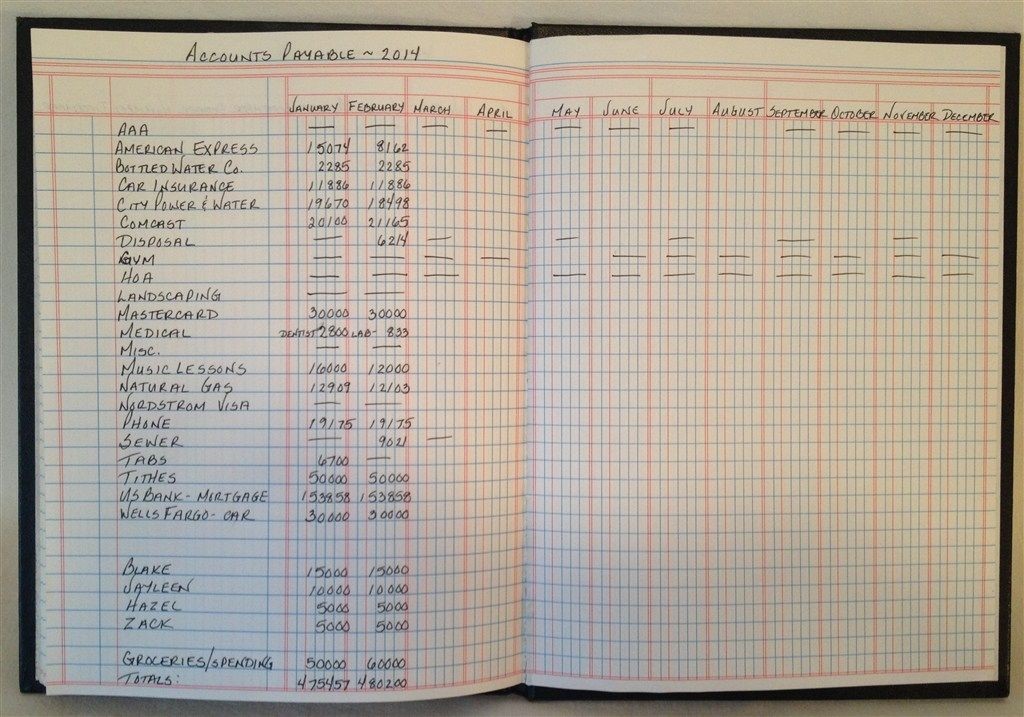 ACCOUNTS PAYABLE ~ 2014
JANUARY FEBRUARY MARCH APRIL MAY JUNE JULY AUGUST SEPTEMBER OCTOBER NOVEMBER DECEMBER
AAA — — — — — — — — — — —
AMERICAN EXPRESS 15074 8162
BOTTLED WATER CO. 2285 2285
CAR INSURANCE 11886 11886
CITY POWER & WATER 19670 18498
COMCAST 20100 21165
DISPOSAL — 6214 — — — — —
GVM — — — — — — — — — — —
HOA — — — — — — — — — — —
LANDSCAPING — —
MASTERCARD 30000 30000
MEDICAL DENTIST 2800 LAB- 833
MISC. — —
MUSIC LESSONS 16000 12000
NATURAL GAS 12909 12103
NORDSTROM VISA — —
PHONE 19175 19175
SEWER — 9021 —
TABS 6700 —
TITHES 50000 50000
US BANK - MORTGAGE 153858 153858
WELLS FARGO - CAR 30000 30000
BLAKE 15000 15000
JAYLEEN 10000 10000
HAZEL 5000 5000
ZACK 5000 5000
GROCERIES/SPENDING 50000 60000
TOTALS: 475457 480200